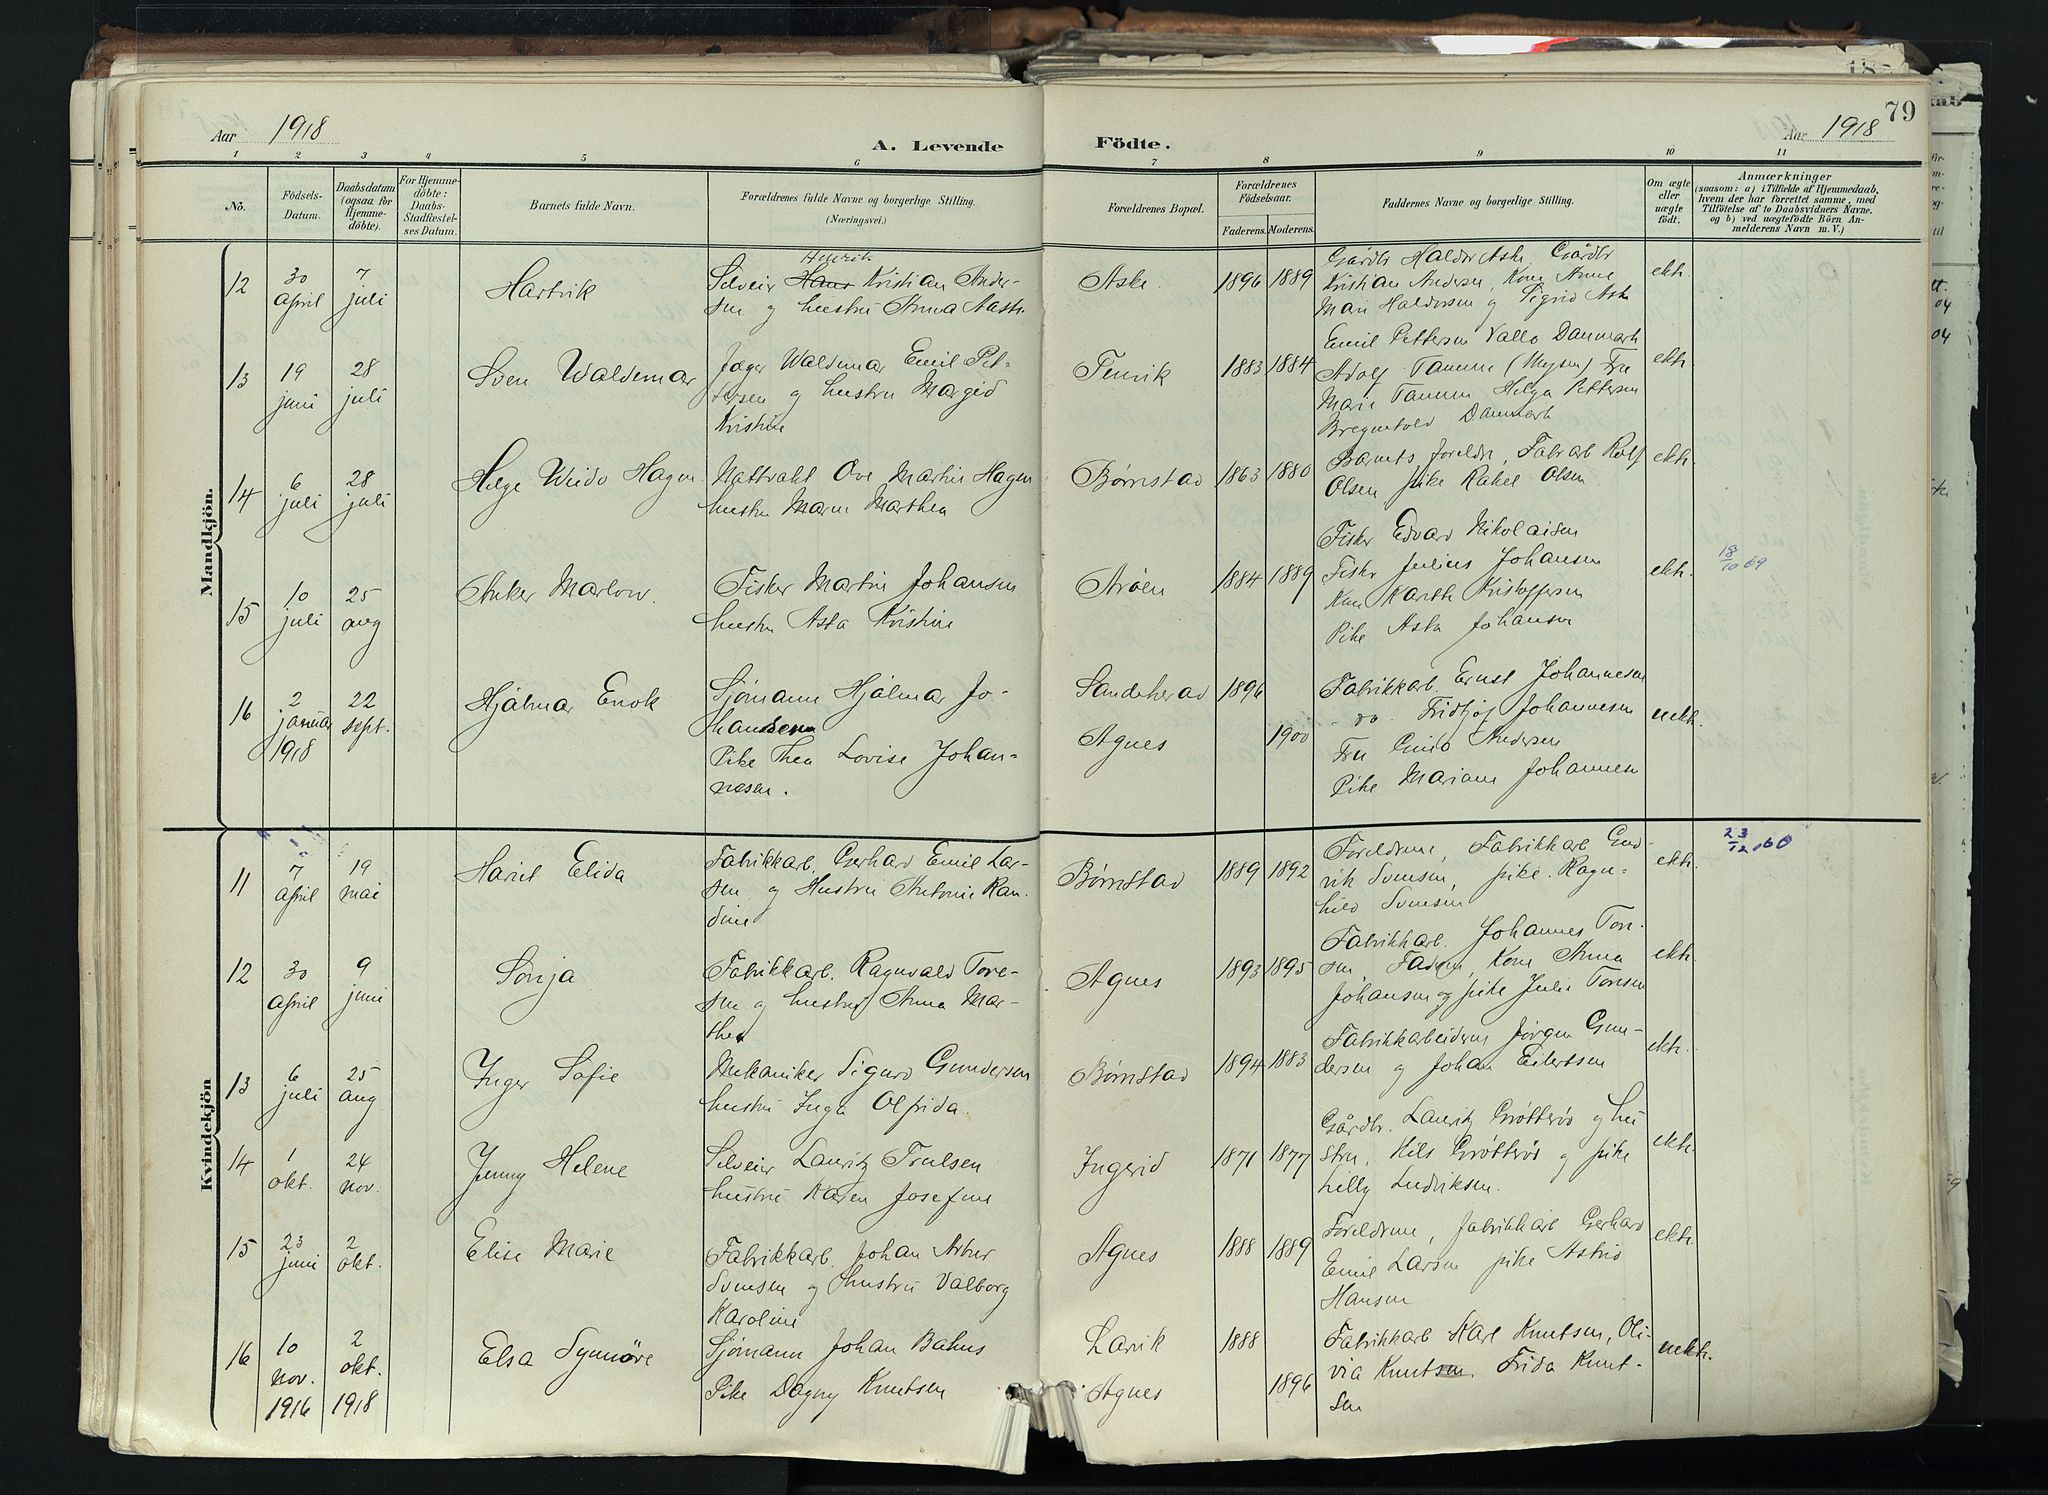 79
Aar 1918
A. Levende Födte.
Aar 1918
1 2 3 4 5 6 7 8 9 10 11
No.
Födsels-
Datum.
Daabsdatum
(ogsaa for
Hjemme-
döbte).
For Hjemme-
döbte:
Daabs-
Stadfæstel-
ses Datum.
Barnets fulde Navn.
Forældrenes fulde Navne og borgerlige Stilling.
(Næringsvei.)
Forældrenes Bopæl.
Forældrenes
Födselsaar.
Faderens. Moderens.
Faddernes Navne og borgerlig Stilling.
Om ægte
eller
uægte
födt.
Anmærkninger
(saasom: a) i Tilfælde af Hjemmedaab,
hvem der har forrettet samme, med
Tilföielse af to Daabsvidners Navne.
og b) ved uægtefödte Börn An-
melderens Navn m. V.)
Mandkjön.
12
30
april
7
juli
Hartvik
Henrik
Selveier Hans Kristian Ander-
sen og hustru Anna Aaste
Aske.
1896 1889
Gårdbr Haldor Aske, Gårdbr
Kristian Andersen, Kone Anne
Mari Haldorsen og Sigrid Aske
ekte
13
19
juni
28
juli
Sven Waldemar
Jæger Waldemar Emil Pet-
tersen og hustru Margid
Kristine
Tenvik
1883 1884
Emil Pettersen Vallo Danmark
Adolf Tamm (Mysen) Fru
Marie Tamm Helga Pettersen
Bregentved Danmark
ekte
14
6
juli
28
juli
Helge Wiido Hagen
Nattvakt Ove Martin Hagen
hustru Maren Marthea
Børnstad
1863 1880
Barnets foreldre, Fabrarb Rolf
Olsen pike Rakel Olsen
ekte
15
10
juli
25
aug
Anker Marlow.
Fisker Martin Johansen
hustru Asta Kristine
Strøen
1884 1889
Fisker Edvard Nikolaisen
Fisker Julius Johansen
Kone Karette Kristoffersen
Pike Asta Johansen
ekte.
18/10 69
16
2
januar
1918
22
sept.
Hjalmar Enok
Sjømann Hjalmar Jo-
hansen
Pike Thea Lovise Johan-
nesen.
Sandeherad
Agnes
1896
1900
Fabrikkarb. Ernst Johannesen
- do. Fridtjof Johannesen
Fru Andersen
Pike Mariane Johannesen
uekte.
Kvindekjön
11
7
april
19
mai
Hariet Elida
Fabrikkarb. Gerhard Emil Lar-
sen og Hustru Antonie Ran-
dine
Børnstad
1889 1892
Foreldrene, Fabrikkarb Gud-
vik Svensen, pike Ragn-
hild Svensen
ekte.
23/12 60
12
30
april
9
juni
Sonja
Fabrikkarb. Ragnvald Tore-
sen og hustru Anna Mar-
thea
Agnes
1893 1895
Fabrikkarb. Johannes Tore-
sen, Faderen, Kone Anna
Johansen og pike Julie Toresen
ekte.
13
6
juli
25
aug
Inger Sofie
Mekaniker Sigurd Gundersen
hustru Inga Olfrida.
Børnstad
1894 1883
Fabrikkarbeiderne Jørgen Gun-
dersen og Johan Eilertsen
ekte.
14
1
okt.
24
nov.
Jenny Helene
Selveier Lauritz Trulsen
hustru Karen Josefine
Ingerid
1871 1877
Gårdbr. Lauritz Grøtterød og hu
stru, Nils Grøtterød og pike
Lilly Ludviksen.
ekte.
15
23
juni
2
okt.
Elise Marie
Fabrikkarb. Johan Artur
Svensen og Hustru Valborg
Karoline
Agnes
1888 1889
Foreldrene, fabrikkarb Gerhard
Emil Larsen pike Astrid
Hansen
ekte.
16
10
nov.
1916
2
okt.
1918
Elsa Synnöve
Sjømann Johan Bahus
Pike Dagny Knutsen
Larvik
Agnes
1888
1896
Fabrikkarb Karl Knutsen, Oli-
via Knutsen. Frida Knut-
sen
uekte.